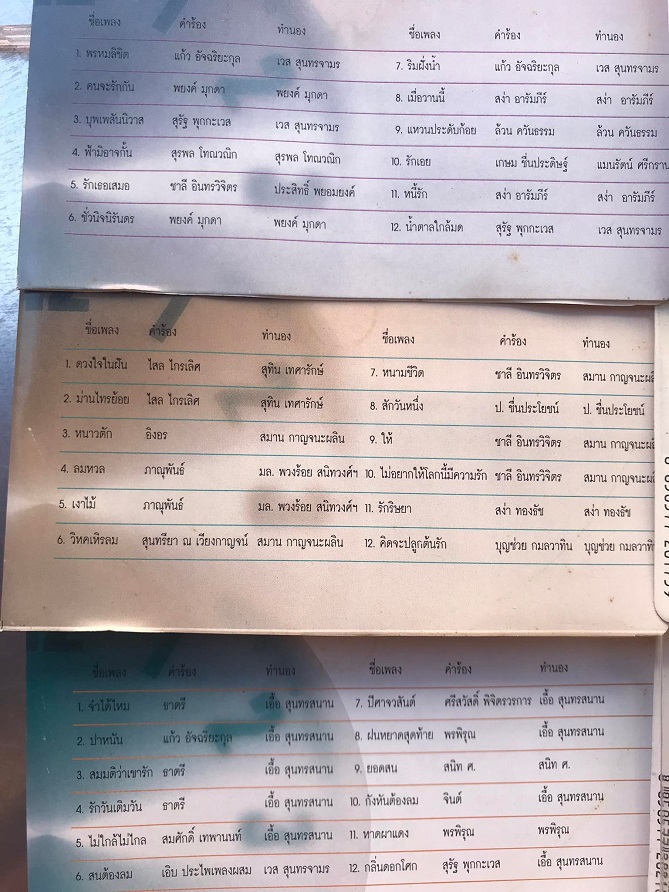 ชื่อเพลง คำร้อง ทำนอง ชื่อเพลง คำร้อง ทำนอง
1. พรหมลิขิต แก้ว อัจฉริยะกุล เวส สุนทรจามร 7. ริมฝั่งน้ำ แก้ว อัจฉริยะกุล เวส สุนทรจามร
2. คนจะรักกัน พยงค์ มุกดา พยงค์ มุกดา 8. เมื่อวานนี้ สง่า อารัมภีร์ สง่า อารัมภีร์
3. บุพเพสันนิวาส สุรัฐ พุกกะเวส เวส สุนทรจามร 9. แหวนประดับก้อย ล้วน ควันธรรม ล้วน ควันธรรม
4. ฟ้ามิอาจกั้น สุรพล โทณวณิก สุรพล โทณวณิก 10. รักเอย เกษม ชื่นประดิษฐ์ แมนรัตน์ ศรีกราน
5. รักเธอเสมอ ชาลี อินทรวิจิตร ประสิทธิ์ พยอมยงค์ 11. หนี้รัก สง่า อารัมภีร์ สง่า อารัมภีร์
6. ชั่วนิจนิรันดร พยงค์ มุกดา พยงค์ มุกดา 12. น้ำตาลใกล้มด สุรัฐ พุกกะเวส เวส สุนทรจามร
ชื่อเพลง คำร้อง ทำนอง ชื่อเพลง คำร้อง ทำนอง
1. ดวงใจในฝัน ไสล ไกรเลิศ สุทิน เทศารักษ์ 7. หนามชีวิต ชาลี อินทรวิจิตร สมาน กาญจนะผลิ
2. ม่านไทรย้อย ไสล ไกรเลิศ สุทิน เทศารักษ์ 8. สักวันหนึ่ง ป. ชื่นประโยชน์ ป. ชื่นประโยชน์
3. หนาวตัก อิงอร สมาน กาญจนะผลิน 9. ให้ ชาลี อินทรวิจิตร สมาน กาญจนะผลิ
4. ลมหวล ภาณุพันธ์ มล. พวงร้อย สนิทวงศ์ฯ 10. ไม่อยากให้โลกนี้มีความรัก ชาลี อินทรวิจิตร สมาน กาญจนะผลิ
5. เงาไม้ ภาณุพันธ์ มล. พวงร้อย สนิทวงศ์ฯ 11. รักริษยา สง่า ทองธัช สง่า ทองธัช
6. วิหคเหิรลม สุนทรียา ณ เวียงกาญจน์ สมาน กาญจนะผลิน 12. คิดจะปลูกต้นรัก บุญช่วย กมลวาทิน บุญช่วย กมลวาทิ
ชื่อเพลง คำร้อง ทำนอง ชื่อเพลง คำร้อง ทำนอง
1. จำได้ไหม ธาตรี เอื้อ สุนทรสนาน 7. ปีศาจวสันต์ ศรีสวัสดิ์ พิจิตรวรการ เอื้อ สุนทรสนาน
2. ปาหนัน แก้ว อัจฉริยะกุล เอื้อ สุนทรสนาน 8. ฝนหยาดสุดท้าย พรพิรุณ เอื้อ สุนทรสนาน
3. สมมติว่าเขารัก ธาตรี เอื้อ สุนทรสนาน 9. ยอดสน สนิท ศ. สนิท ศ.
4. รักวันเติมวัน ธาตรี เอื้อ สุนทรสนาน 10. กังหันต้องลม จินต์ เอื้อ สุนทรสนาน
5. ไม่ใกล้ไม่ไกล สมศักดิ์ เทพานนท์ เอื้อ สุนทรสนาน 11. หาดผาแดง พรพิรุณ พรพิรุณ
6. สนต้องลม เอิบ ประไพเพลงผสม เวส สุนทรจามร 12. กลิ่นดอกโศก สุรัฐ พุกกะเวส เอื้อ สุนทรสนาน